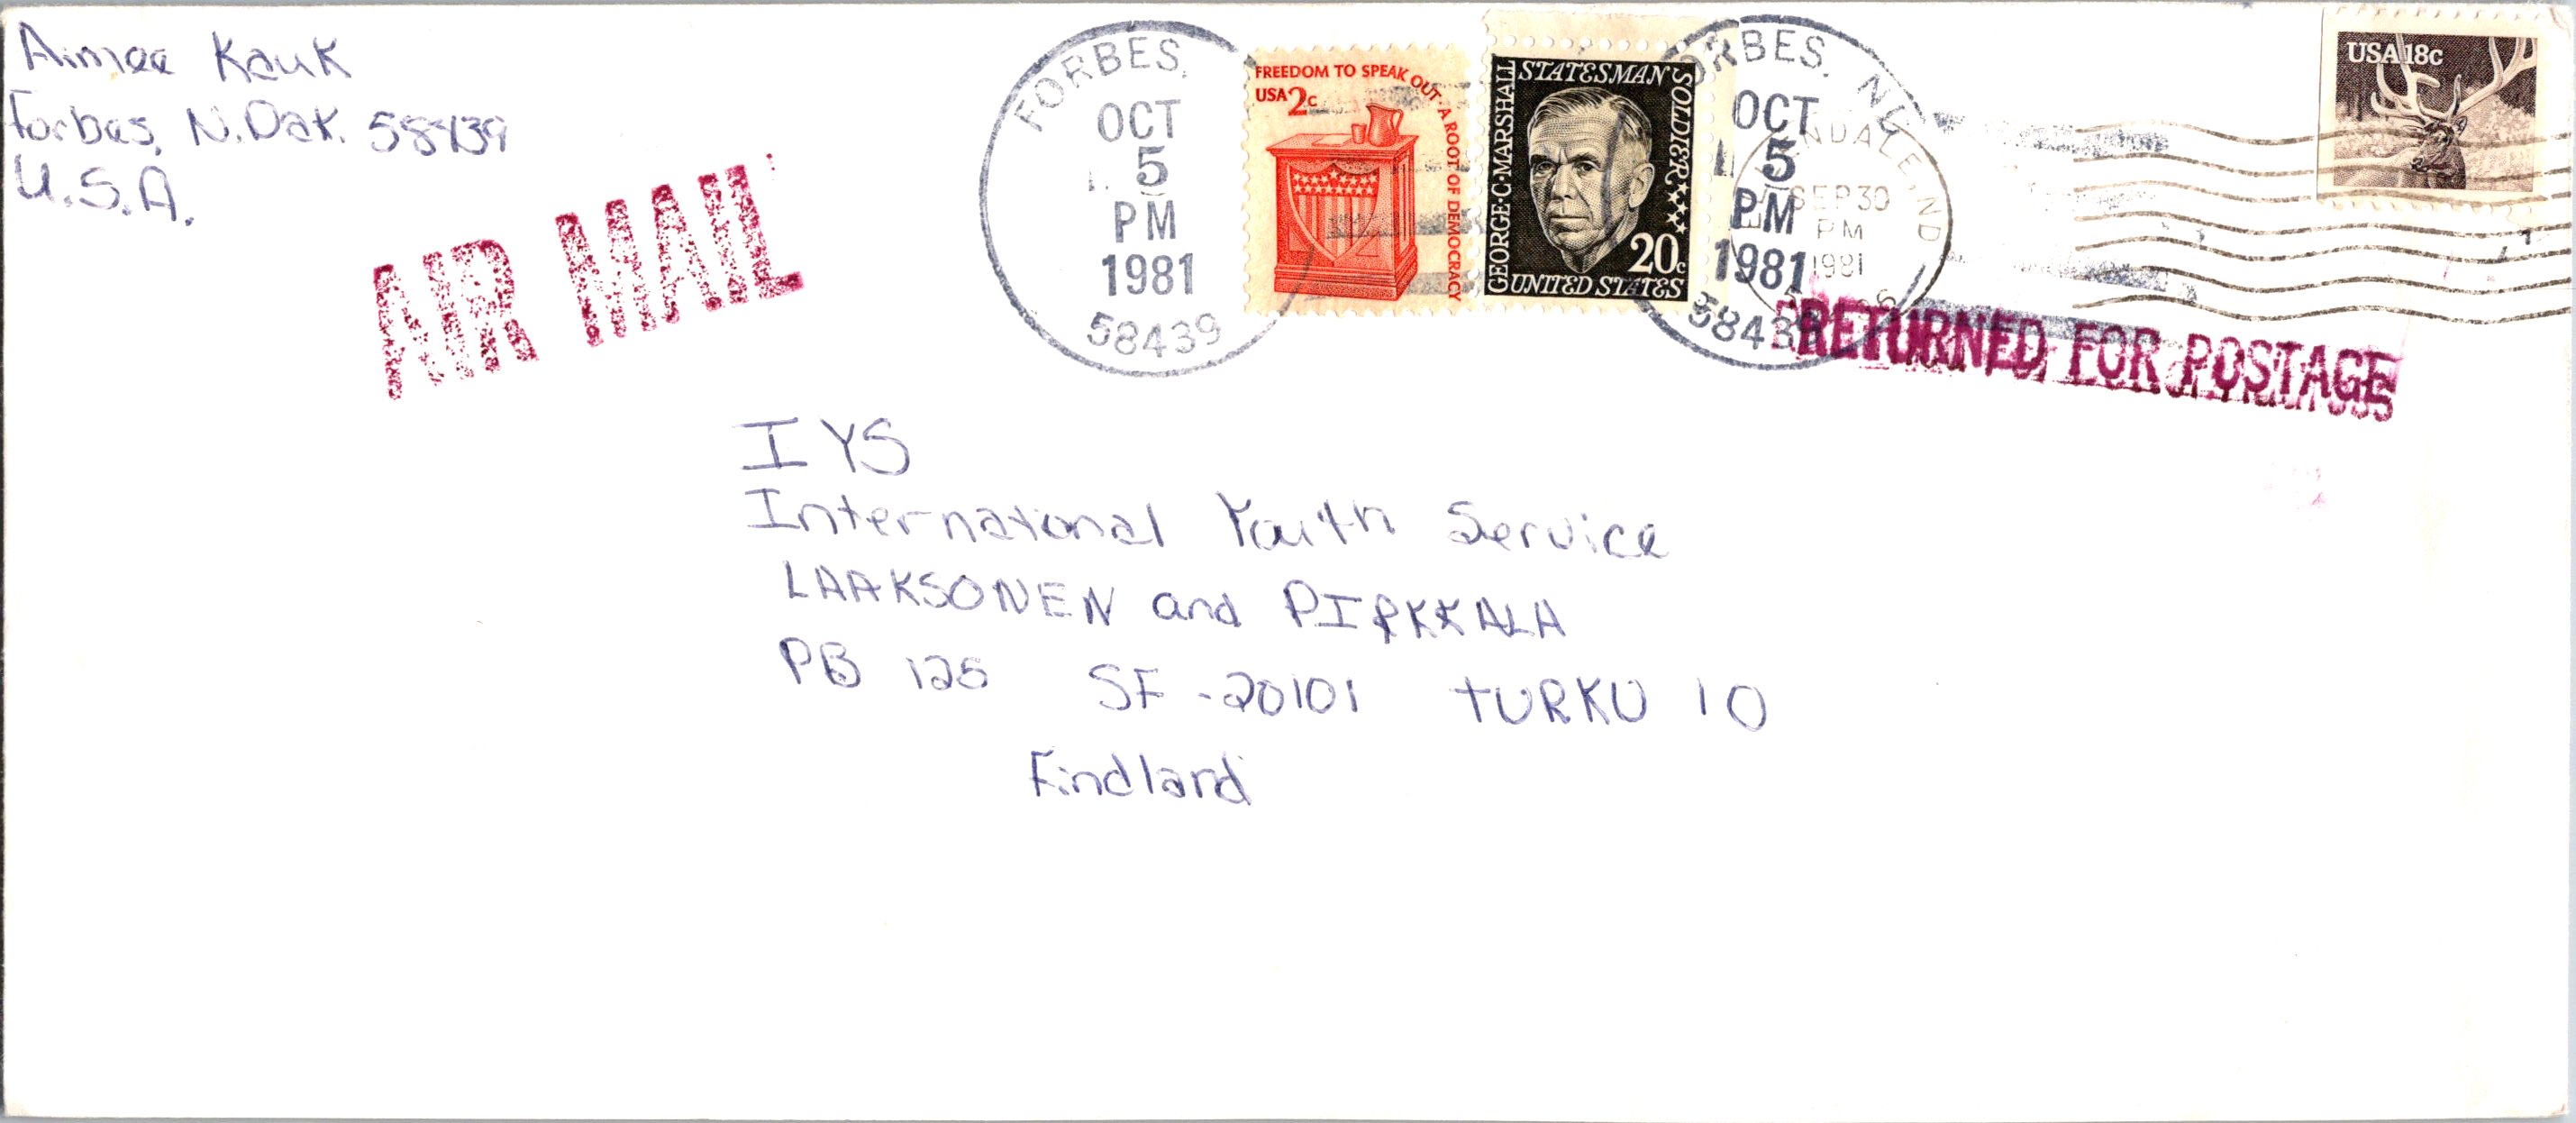 Aimee Kauk
Forbes, N.Dak. 58439
U.S.A.
AIR MAIL
FORBES,
OCT
5
PM
1981
58439
FREEDOM TO SPEAK OUT · A ROOT OF DEMOCRACY
USA 2c
GEORGE·C·MARSHALL
STATESMAN SOLDIER
20c
UNITED STATES
FORBES, ND
OCT
5
PM
1981
58439
SEP 30
PM
1981
USA 18c
RETURNED FOR POSTAGE
IYS
International Youth Service
LAAKSONEN and PIRKKALA
PB 125 SF-20101 TURKU 10
Findland